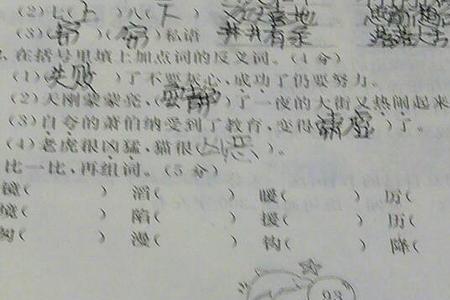 (2)七(上)八(下)
(3)(窃)(窃)私语 井井有条
在括号里填上加点词的反义词。(4分)
(1)(失败)了不要灰心,成功了仍要努力。
(2)天刚蒙蒙亮,( )了一夜的大街又热闹起来
(3)自夸的萧伯纳受到了教育,变得(谦虚)了。
(4)老虎很凶猛,猫很( )。
比一比,再组词。(5分)
镜( ) 滔( ) 暖( ) 厉( )
境( ) 陷( ) 援( ) 历( )
漫( ) 钩( ) 降(
93